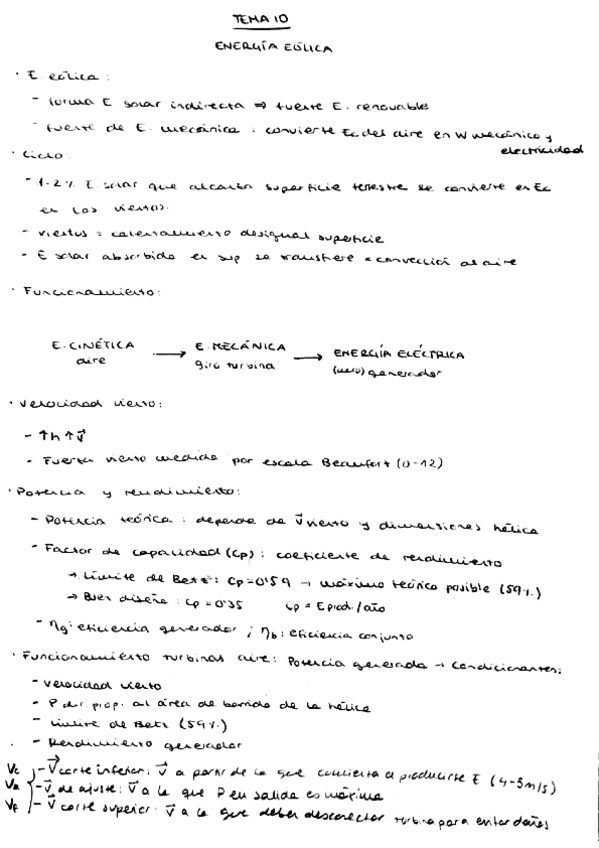 TEMA 10
ENERGÍA EÓLICA
· E eólica:
- forma E solar indirecta ⇒ fuente E. renovable
- fuente de E. mecánica: convierte Ec del aire en W mecánico y
electricidad
· Ciclo:
- 1-2% E solar que alcanza superficie terrestre se convierte en Ec
en los vientos.
- vientos = calentamiento desigual superficie
- E solar absorbida en sup se transfiere = convección al aire
· Funcionamiento:
E. CINÉTICA → E. MECÁNICA → ENERGÍA ELÉCTRICA
aire giro turbina generador
· Velocidad viento:
- ↑h ↑v⃗
- Fuerza viento medida por escala Beaufort (0-12)
· Potencia y rendimiento:
- Potencia teórica: depende de v⃗ viento y dimensiones hélice
- Factor de capacidad (Cp): coeficiente de rendimiento
→ Límite de Betz: Cp=0'59 → máximo teórico posible (59%)
→ Buen diseño: Cp=0'35 Cp = Eprod/año
- ηg: eficiencia generador; ηb: eficiencia conjunto
· Funcionamiento turbinas aire: Potencia generada → Condicionantes:
- velocidad viento
- P dir. prop. al área de barrido de la hélice
- Límite de Betz (59%)
- Rendimiento generador
Vc - V⃗ corte inferior: v⃗ a partir de la que comienza a producirse E (4-5m/s)
- v⃗ de ajuste: v⃗ a la que P en salida es máxima
VF - v⃗ corte superior: v⃗ a la que deben desconectar turbina para evitar daños